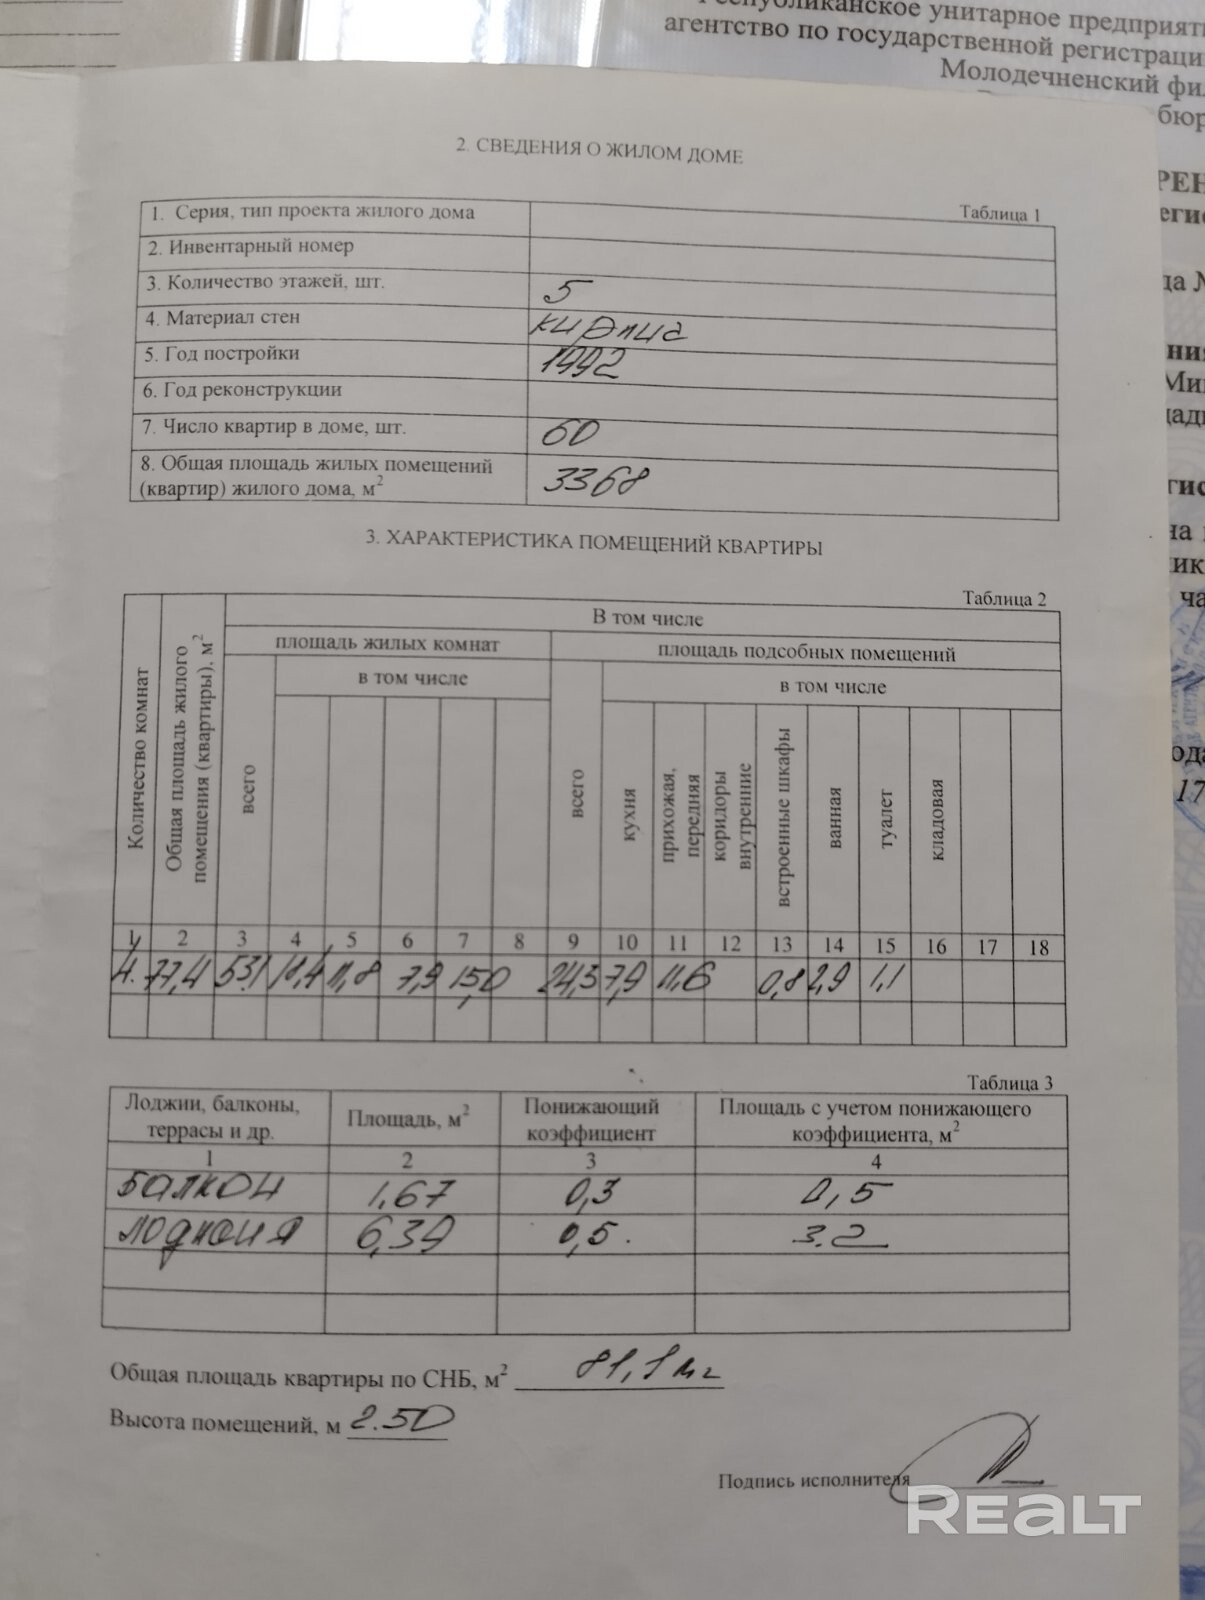 Республиканское унитарное предприяти
агентство по государственной регистраци
Молодечненский фил
бюр
РЕН
егис
да №
ния
Мин
гис
на
ик
ча
ода
17
2. СВЕДЕНИЯ О ЖИЛОМ ДОМЕ
Таблица 1
1. Серия, тип проекта жилого дома
2. Инвентарный номер
3. Количество этажей, шт. 5
4. Материал стен кирпич
5. Год постройки 1992
6. Год реконструкции
7. Число квартир в доме, шт. 60
8. Общая площадь жилых помещений
(квартир) жилого дома, м2 3368
3. ХАРАКТЕРИСТИКА ПОМЕЩЕНИЙ КВАРТИРЫ
Таблица 2
Количество комнат
Общая площадь жилого
помещения (квартиры), м2
В том числе
площадь жилых комнат
площадь подсобных помещений
всего
в том числе
всего
в том числе
кухня
прихожая,
передняя
коридоры
внутренние
встроенные шкафы
ванная
туалет
кладовая
1 2 3 4 5 6 7 8 9 10 11 12 13 14 15 16 17 18
4. 77,4 53,1 18,4 11,8 7,9 15,0 24,3 7,9 11,6 0,8 2,9 1,1
Таблица 3
Лоджии, балконы,
террасы и др.
Площадь, м2
Понижающий
коэффициент
Площадь с учетом понижающего
коэффициента, м2
1 2 3 4
Балкон 1,67 0,3 0,5
Лоджия 6,39 0,5. 3.2
Общая площадь квартиры по СНБ, м2 81,1 м2
Высота помещений, м 2.50
Подпись исполнителя
REALT